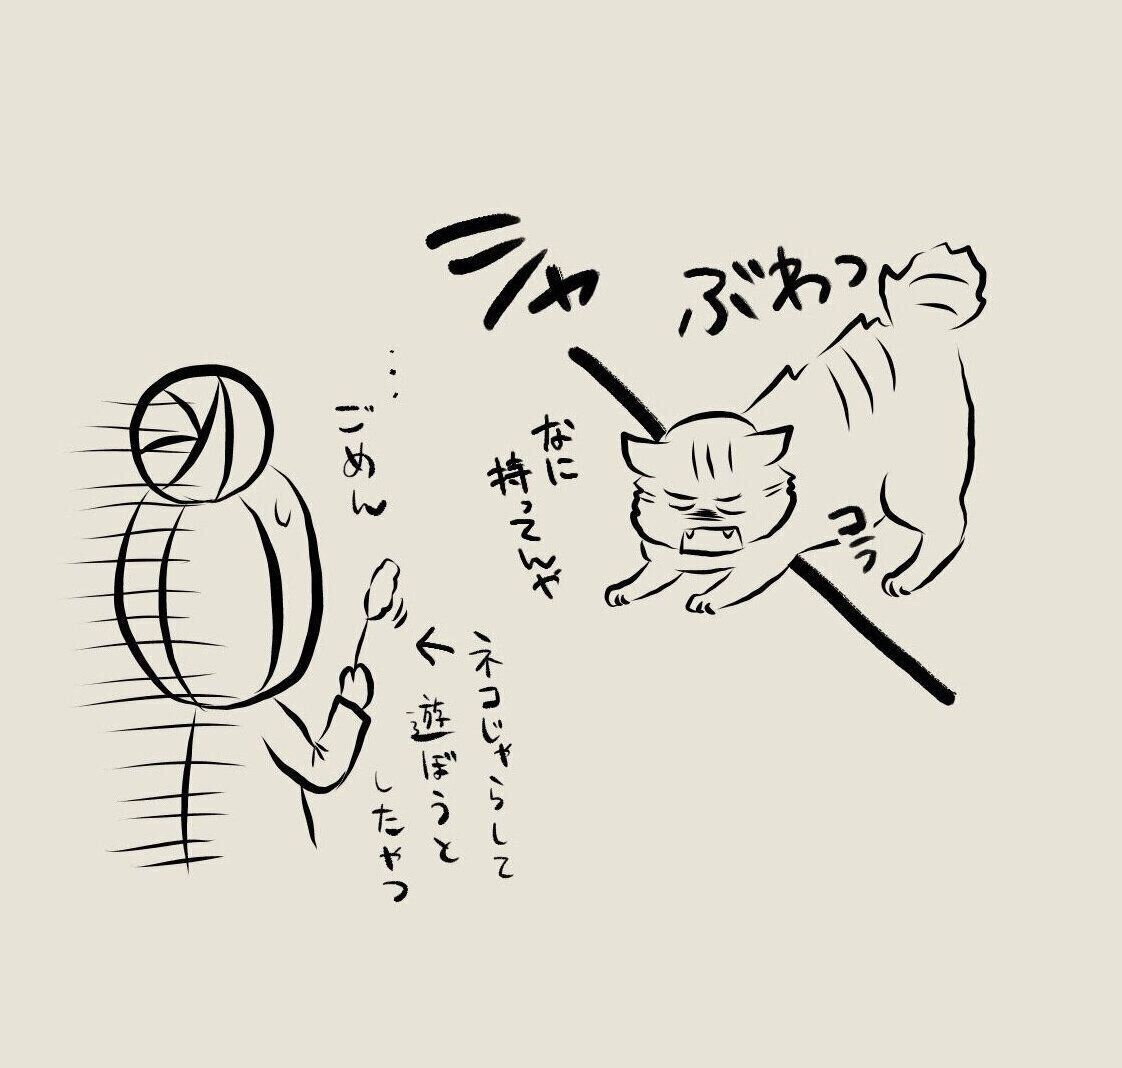 ぶわっ
シャ
なに
持ってんや
コラ
ごめん
…
ネコじゃらして
遊ぼうと
したやつ
←